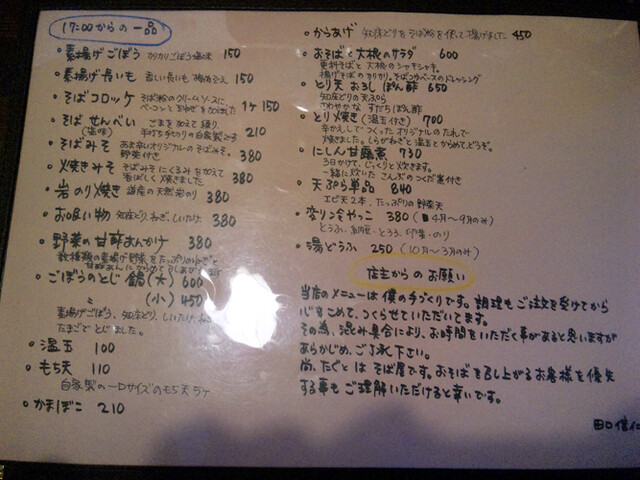 17:00からの一品
・素揚げごぼう カリカリごぼう塩味 150
・素揚げ長いも 香しい長いも 梅和え 150
・そばコロッケ そば粉のクリームソースに
ベーコンと玉ねぎを加えました 1ケ 150
・そばせんべい ごまを加えて練り、
(塩味) 手打ち手切りの自家製 210
・そばみそ あま辛いオリジナルのそばみそ。
野菜付き 380
・焼きみそ そばみそにくるみを加えて
香ばしく焼きました 380
・岩のり焼き 道産の天然岩のり 380
・お吸い物 知床どり、ねぎ、しいたけ 380
・野菜の甘酢あんかけ 380
数種類の素揚げ野菜をたっぷりのねぎと
甘酢あんにからめて
・ごぼうのとじ鍋(大) 600
〃 (小) 450
素揚げごぼう、知床どり、しいたけ、ねぎ
たまごでとじました。
・温玉 100
・もち天 110
自家製の一口サイズのもち天 5ケ
・かまぼこ 210
・からあげ 知床どりをそば粉を使って揚げました 450
・おそばと大根のサラダ 600
更科そばと大根のシャキシャキ。
揚げそばのカリカリ。そばつゆベースのドレッシング
・とり天おろしぽん酢 650
知床どりの天ぷら
さわやかなすだちぽん酢
・とり焼き(温玉付き) 700
辛かえしでつくったオリジナルのたれで
焼きました。しらがねぎと温玉とからめてどうぞ。
・にしん甘露煮 730
3日かけて、じっくりと炊きます。
一緒に炊いたさんぶのつくだ煮付き
・天ぷら単品 840
エビ天2本、たっぷりの野菜天
・変り冷やっこ 380 (4月〜9月のみ)
とうふ、納豆、とろろ、卵黄、のり
・湯どうふ 250 (10月〜3月のみ)
店主からのお願い
当店のメニューは僕の手づくりです。調理もご注文を受けてから
心をこめて、つくらせていただいてます。
その為、混み具合により、お時間をいただく事があると思いますが
あらかじめ、ご了承下さい。
尚、たぐとはそば屋です。おそばを召し上がるお客様を優先
する事もご理解いただけると幸いです。
田口信仁